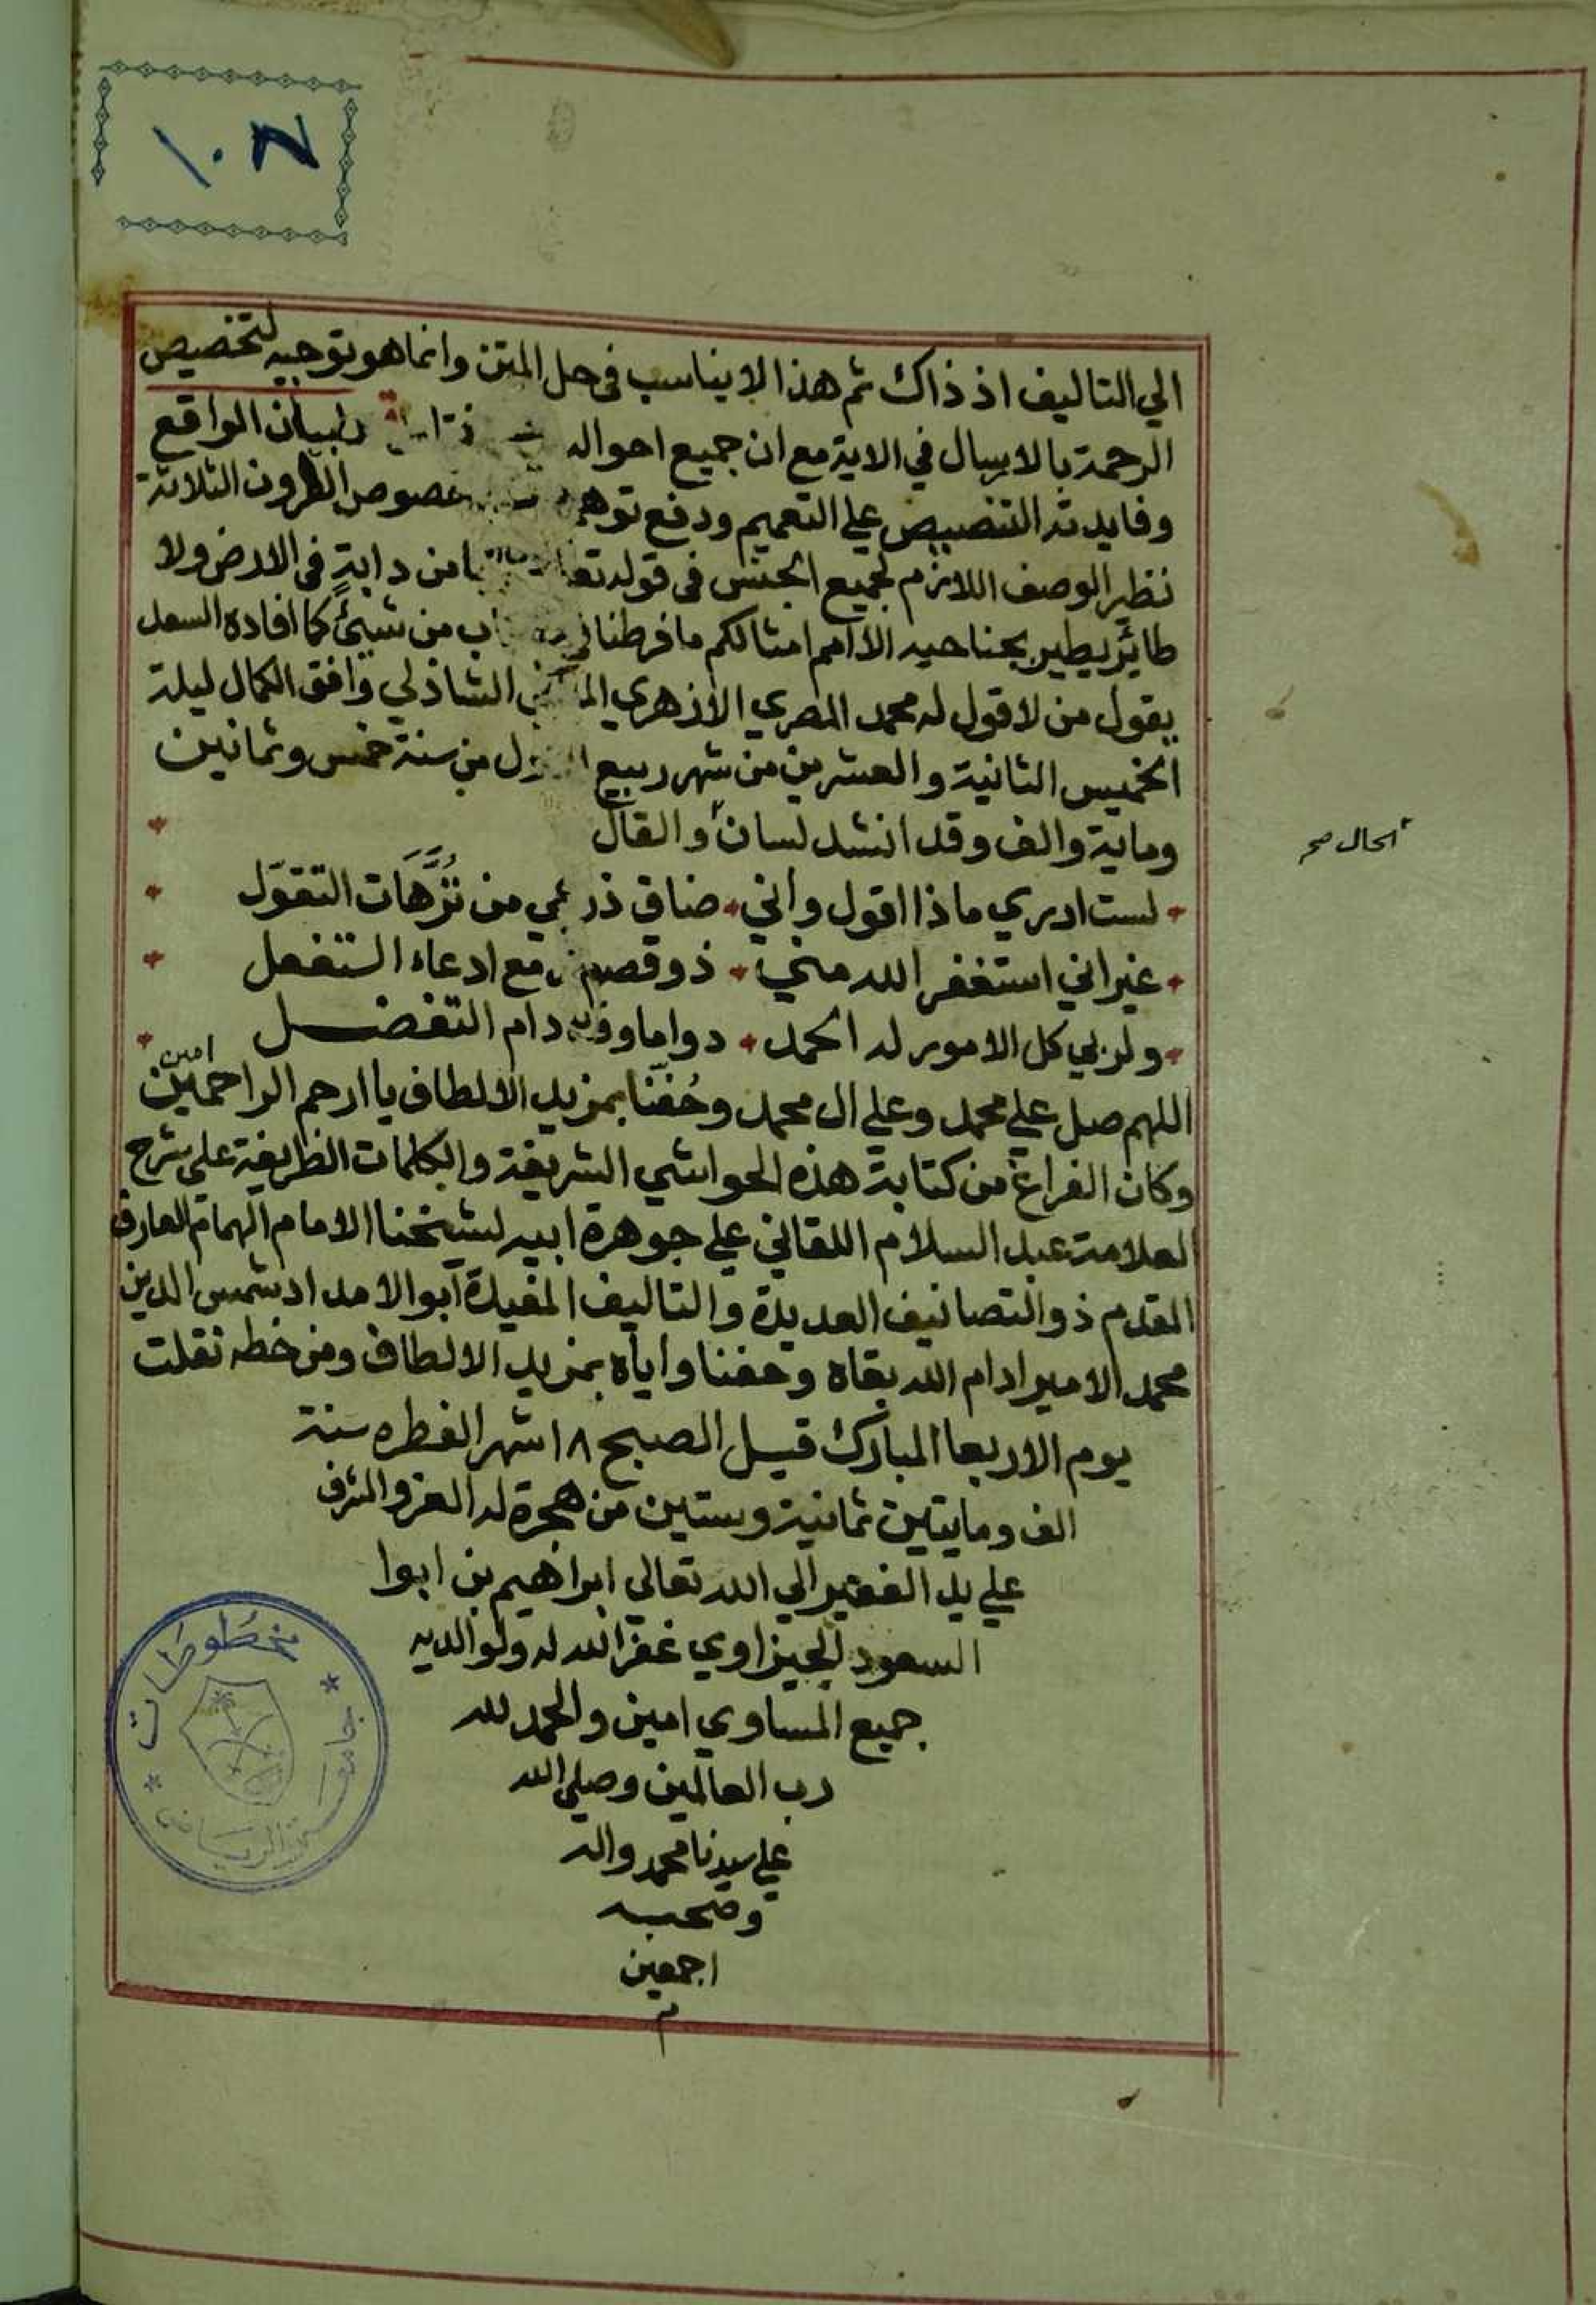 ١٠٨
الي التاليف اذ ذاك ثم هذا لا يناسب في حل المتن وانما هو توجيه لتخصيص
الرحمة بالارسال في الاية مع ان جميع احواله لبيان الواقع
وفايدته التنصيص علي التعميم ودفع توهم خصوص القرون الثلاثة
نظير الوصف اللازم لجميع الجنس في قوله من دابةٍ في الارض ولا
طائر يطير بجناحيه الا امم امثالكم ما فرطنا من شيئ كما افاده السعد
يقول من لا قول له محمد المصري الازهري الشاذلي وافق الكمال ليلة
الخميس الثانية والعشرين من شهر ربيع من سنة خمس وثمانين
وماية والف وقد انشد لسان والقال
الحال صح
لست ادري ماذا اقول واني ضاق ذرعي من تُرَّهَات التقوّل
غير اني استغفر الله مني ذو قصور مع ادعاء التفعل
ولربي كل الامور له الحمد دواما وفيه دام التفضل
اللهم صل علي محمد وعلي ال محمد وحُفنّا بمزيد الالطاف يا ارحم الراحمين امين
وكان الفراغ من كتابة هذه الحواشي الشريفة والكلمات الظريفة علي شرح
العلامة عبد السلام اللقاني علي جوهرة ابيه لشيخنا الامام الهمام العارف
المقدم ذو التصانيف العديدة والتاليف المفيدة ابو الامداد شمس الدين
محمد الامير ادام الله بقاه وحفنا واياه بمزيد الالطاف ومن خطه نقلت
يوم الاربعا المبارك قبيل الصبح ١٨ شهر الفطره سنة
الف ومايتين ثمانية وستين من هجرة له العز والشرف
علي يد الفقير الي الله تعالي ابراهيم بن ابوا
السعود الجيزاوي غفر الله له ولوالديه
جميع المساوي امين والحمد لله
رب العالمين وصلي الله
علي سيدنا محمد واله
وصحبه
اجمعين
م
مخطوطات
جامعة الرياض